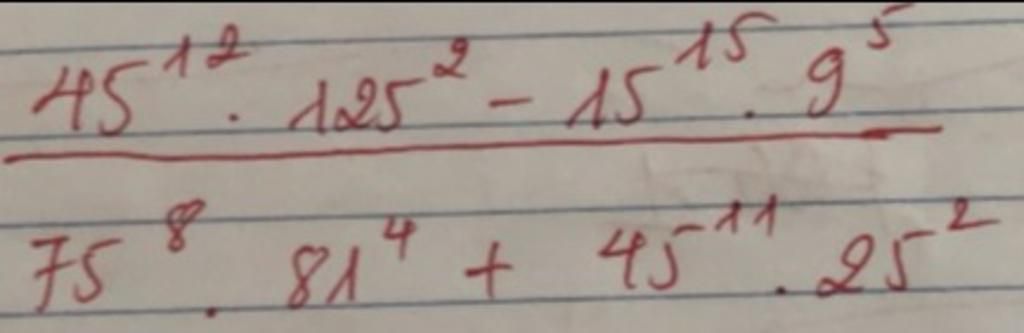 45¹² . 125² - 15¹⁵ . 9⁵
75⁸ . 81⁴ + 45¹¹ . 25²